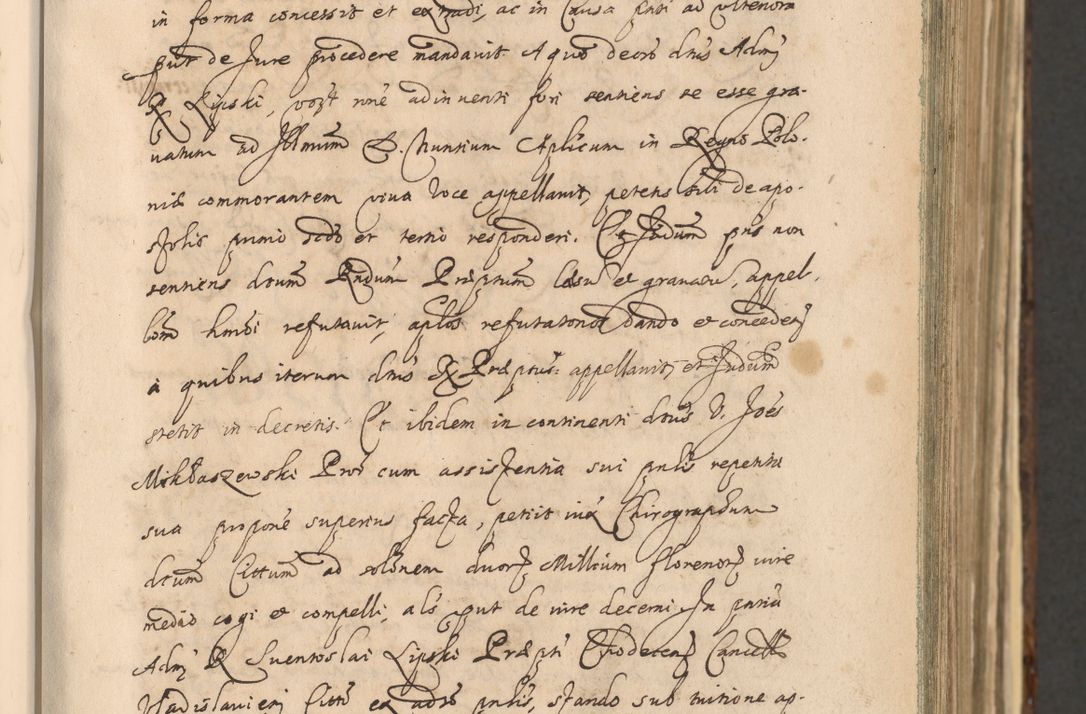 in forma concessit et extradi, ac in Causa pnti ad ulteriora
put de Jure procedere mandavit A quo decro dns Admỹ
R Lipski, vọzt nrẽ adinventi fori sentiens se esse gra-
vatum ad Jllmum D. Nuntium Aplicum in Regno Polo-
niæ commorantem viva voce appellavit, petens sibi de apo-
stolis primo scdo et tertio responderi. Et Judium pns non
sentiens dtum Rndum Præptum læsu et gravatu, appel-
lõm hmõi refutavit, aplos refutatorios dando et conceden
à quibus iterum dns R Præptus: appellavit, et Judium
stetit in decretis. Et ibidem in continenti dtus D. Joẽs
Mikłaszewski Pror cum assistentia sui pnlis repetita
sua proponẽ superius facta, petiit iux Chirographum
dtum Cittum ad solõnem duorȝ Millium florenorȝ iure
medio cogi et compelli, als put de iure decerni. In pntia
Admỹ R Suentoslai Lipski Præpti Chodecen Cancellii
Vladislavien Citti ex adro pnlis, stando sub tuitione ap-